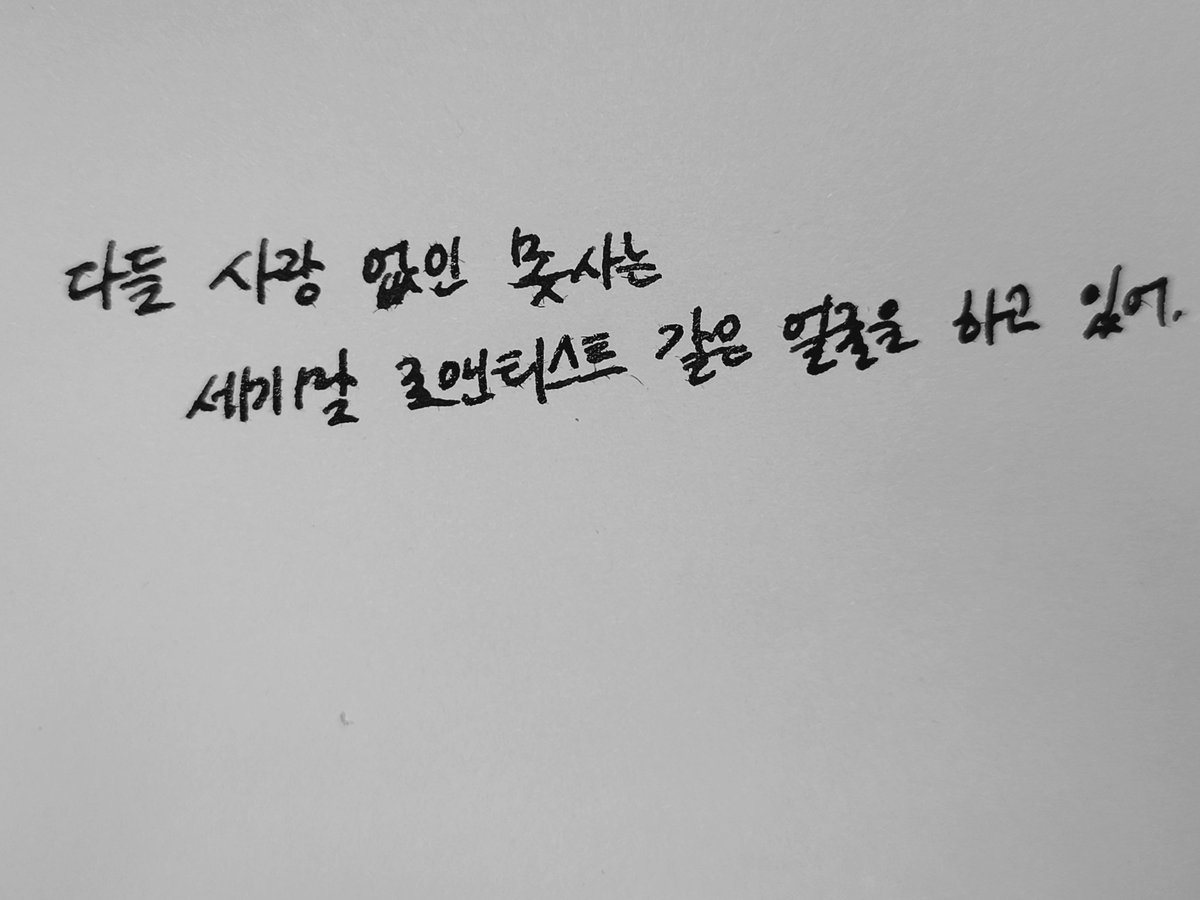 다들 사랑 없인 못사는
세기말 로맨티스트 같은 얼굴을 하고 있어.